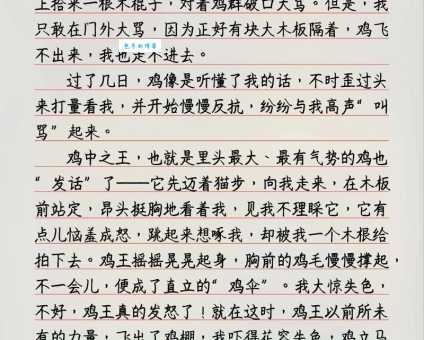 上拾来一根木棍子，对着鸡群破口大骂。但是，我
只敢在门外大骂，因为正好有块大木板隔着，鸡飞
不出来，我也走不进去。
过了几日，鸡像是听懂了我的话，不时歪过头
来打量看我，并开始慢慢反抗，纷纷与我高声“叫
骂”起来。
鸡中之王，也就是里头最大、最有气势的鸡也
“发话”了——它先迈着猫步，向我走来，在木板
前站定，昂头挺胸地看着我，见我不理睬它，它有
点儿恼羞成怒，跳起来想啄我，却被我一个木棍给
拍下去。鸡王摇摇晃晃起身，胸前的鸡毛慢慢撑起，
不一会儿，便成了直立的“鸡伞”。我大惊失色，
不好，鸡王真的发怒了！就在这时，鸡王以前所未
有的力量，飞出了鸡棚，我吓得花容失色，鸡立马